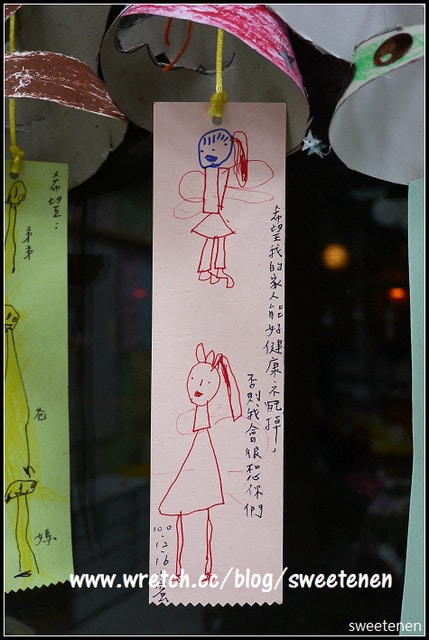 希望：
弟弟
爸
媽
希望我的家人能好健康,不死掉,
否則,我會很想你們
100.12.16
www.wretch.cc/blog/sweetenen
sweetenen